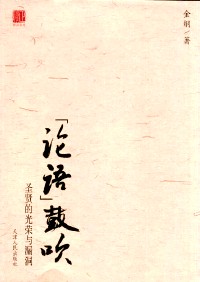 金纲/著
「论语」鼓吹
圣贤的光荣与漏洞
天津人民出版社